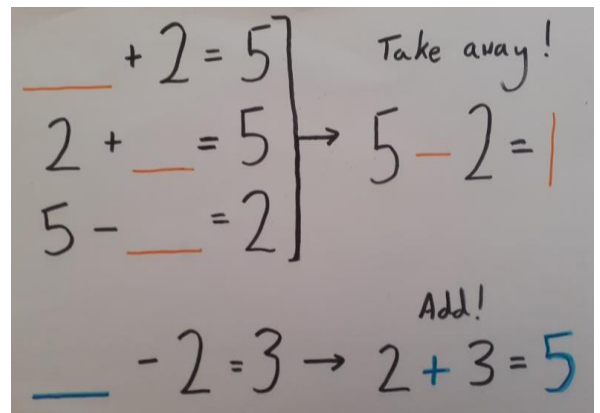 ___ + 2 = 5
2 + ___ = 5
5 - ___ = 2
Take away!
5 - 2 = 1
Add!
___ - 2 = 3 → 2 + 3 = 5